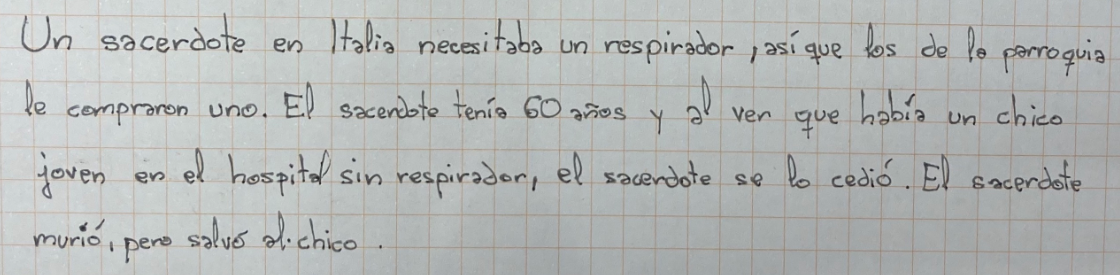 Un sacerdote en Italia necesitaba un respirador, así que los de la parroquia
le compraron uno. El sacerdote tenía 60 años y al ver que había un chico
joven en el hospital sin respirador, el sacerdote se lo cedió. El sacerdote
murió, pero salvó al chico.